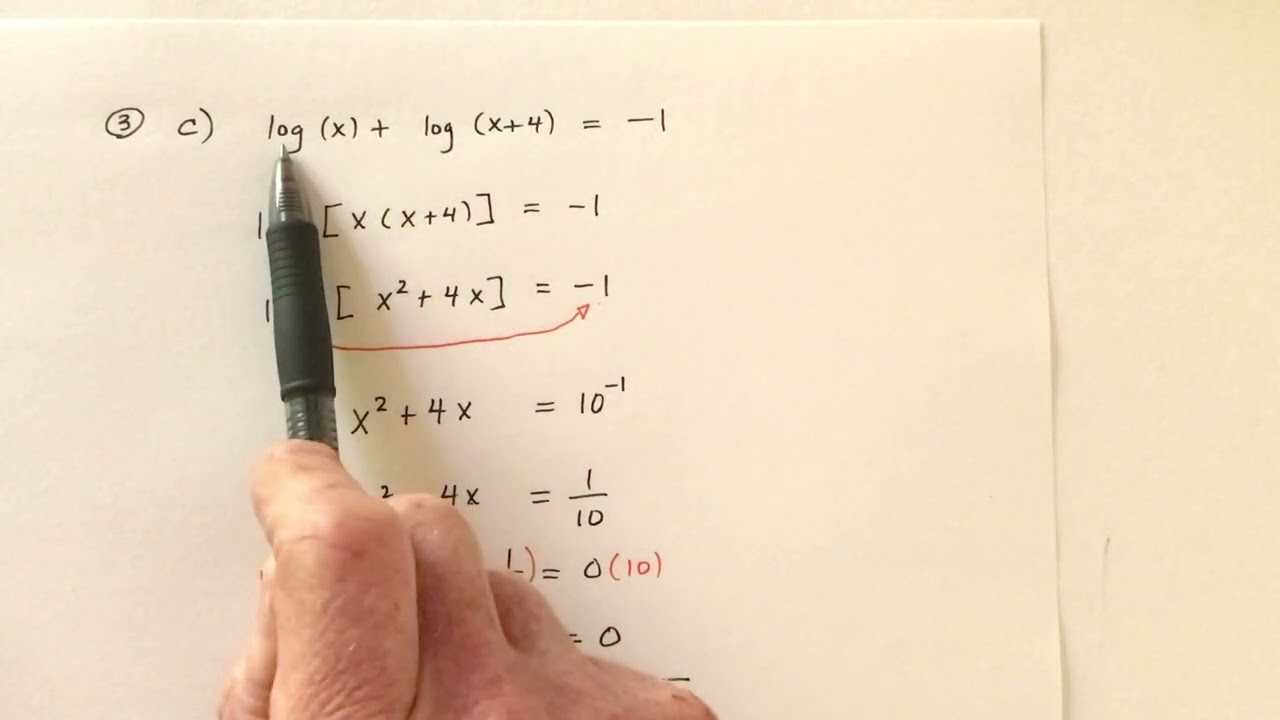 ③ c) log (x) + log (x+4) = -1
[x (x+4)] = -1
[x² + 4x] = -1
x² + 4x = 10⁻¹
² 4x = 1/10
) = 0(10)
= 0